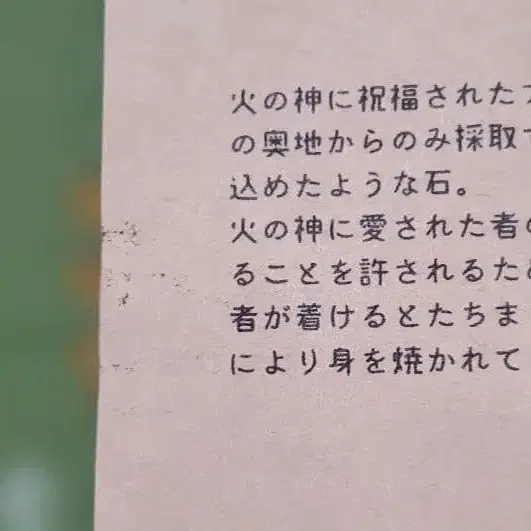 火の神に祝福された
の奥地からのみ採取
込めたような石。
火の神に愛された者
ることを許されるた
者が着けるとたちま
により身を焼かれて